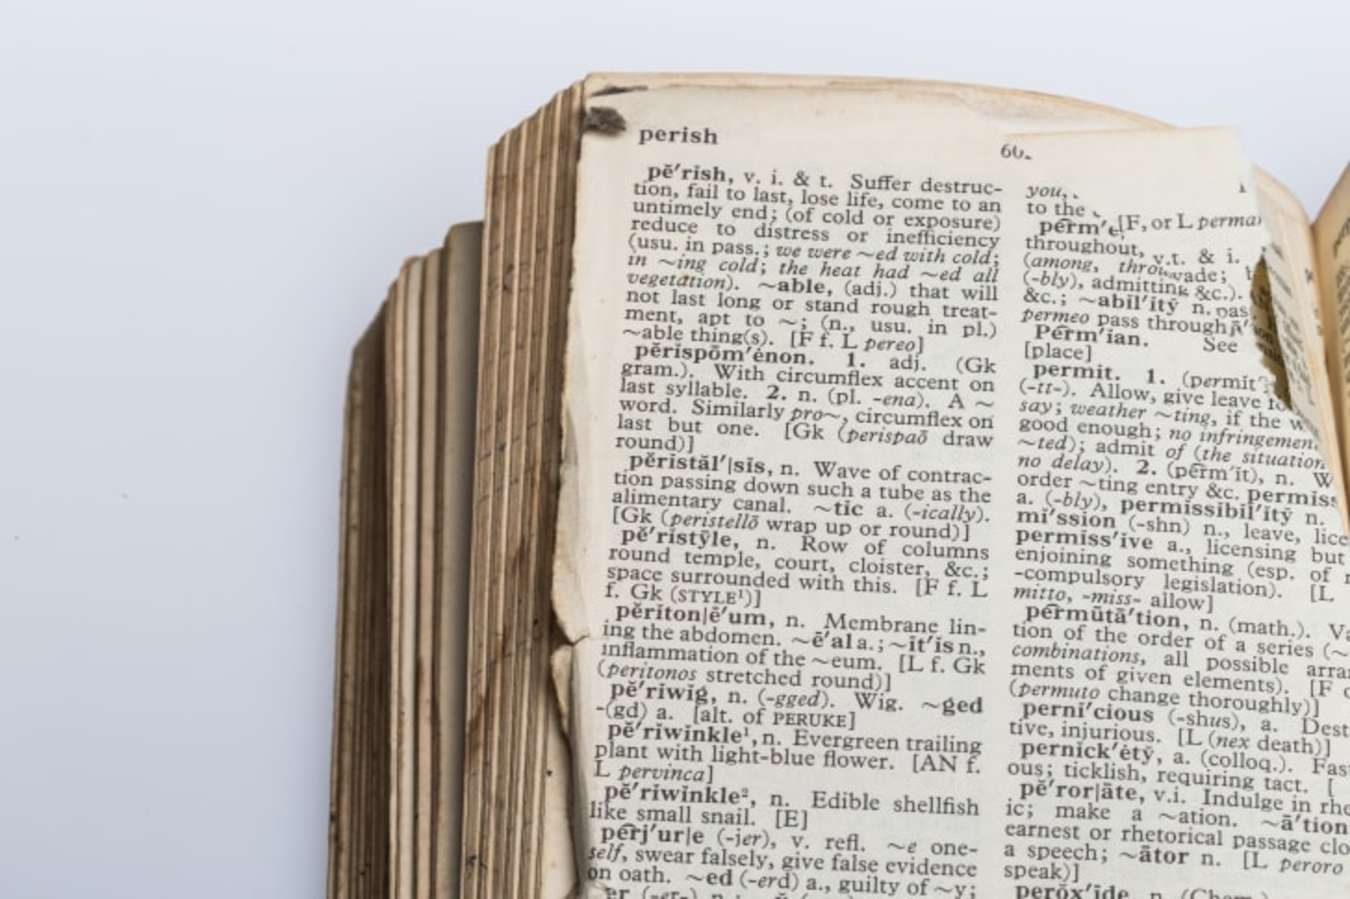 perish
pĕ′rish, v. i. & t. Suffer destruc-
tion, fail to last, lose life, come to an
untimely end; (of cold or exposure)
reduce to distress or inefficiency
(usu. in pass.; we were ~ed with cold;
in ~ing cold; the heat had ~ed all
vegetation). ~able, (adj.) that will
not last long or stand rough treat-
ment, apt to ~; (n., usu. in pl.)
~able thing(s). [F f. L pereo]
pĕrispōm′ėnon. 1. adj. (Gk
gram.). With circumflex accent on
last syllable. 2. n. (pl. -ena). A ~
word. Similarly pro~, circumflex on
last but one. [Gk (perispaō draw
round)]
pĕristăl′|sĭs, n. Wave of contrac-
tion passing down such a tube as the
alimentary canal. ~tĭc a. (-ically).
[Gk (peristellō wrap up or round)]
pĕ′rĭstȳle, n. Row of columns
round temple, court, cloister, &c.;
space surrounded with this. [F f. L
f. Gk (STYLE¹)]
pĕrĭton|ē′um, n. Membrane lin-
ing the abdomen. ~ē′al a.; ~īt′ĭs n.,
inflammation of the ~eum. [L f. Gk
(peritonos stretched round)]
pĕ′rĭwĭg, n. (-gged). Wig. ~gĕd
-(gd) a. [alt. of PERUKE]
pĕ′rĭwĭnkle¹, n. Evergreen trailing
plant with light-blue flower. [AN f.
L pervinca]
pĕ′rĭwĭnkle², n. Edible shellfish
like small snail. [E]
perj′ur|e (-jer), v. refl. ~e one-
self, swear falsely, give false evidence
on oath. ~ed (-erd) a., guilty of ~y;
you,
to the
[F, or L
throughout, v.t. & i.
(among,
(-bly), admitting &c.).
&c.; ~abĭl′ĭtў n.
permeo pass through
Perm′ian. See
[place]
permit. 1.
(-tt-). Allow, give leave
say; weather ~ting, if the
good enough; no
~ted); admit of (the situation
no delay). 2. (perm′ĭt), n.
order ~ting entry &c.
a. (-bly), permĭssĭbĭl′ĭtў n.
mĭ′ssion (-shn) n., leave,
permĭss′ĭve a., licensing but
enjoining something (esp. of
-compulsory legislation). [L
mitto, -miss- allow]
permūtā′tion, n. (math.).
tion of the order of a series
combinations, all possible
ments of given elements). [F
(permuto change thoroughly)]
pernĭ′cious (-shus), a.
tive, injurious. [L (nex death)]
pernĭck′ėtў, a. (colloq.).
ous; ticklish, requiring tact. [
pĕ′ror|āte, v.i. Indulge in
ic; make a ~ation. ~ā′tion
earnest or rhetorical passage
a speech; ~ātor n. [L peroro
speak)]
perŏx′īde, n. (Chem.)